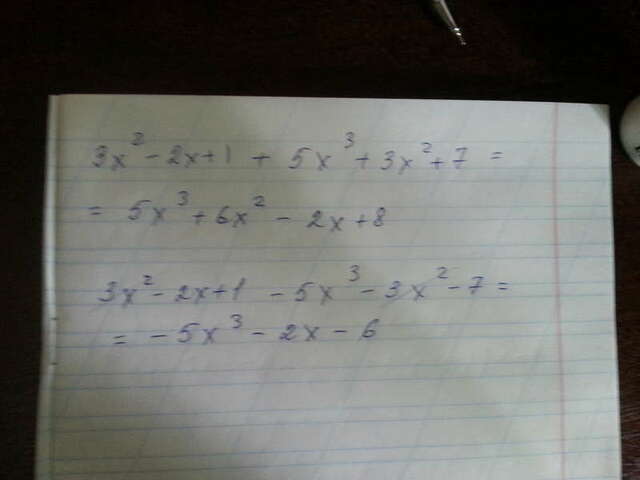 3x² - 2x + 1 + 5x³ + 3x² + 7 =
= 5x³ + 6x² - 2x + 8
3x² - 2x + 1 - 5x³ - 3x² - 7 =
= - 5x³ - 2x - 6